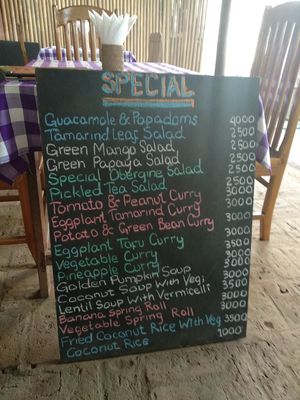 SPECIAL
Guacamole & Papadoms 4000
Tamarind Leaf Salad 2500
Green Mango Salad 2500
Green Papaya Salad 2500
Special Obergine Salad 2500
Pickled Tea Salad 2500
Tomato & Peanut Curry 3000
Eggplant Tamarind Curry 3000
Potato & Green Bean Curry 3000
Eggplant Tofu Curry 3500
Vegetable Curry 3000
Pineapple Curry 3000
Golden Pumpkin Soup 3000
Coconut Soup With Vegi 3500
Lentil Soup With Vermicelli 3000
Banana Spring Roll 3000
Vegetable Spring Roll 3000
Fried Coconut Rice With Veg 3500
Coconut Rice 1000